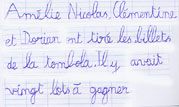 Amélie Nicolas, Clémentine
et Dorian ont tiré les billets
de la tombola. Il y avait
vingt lots à gagner